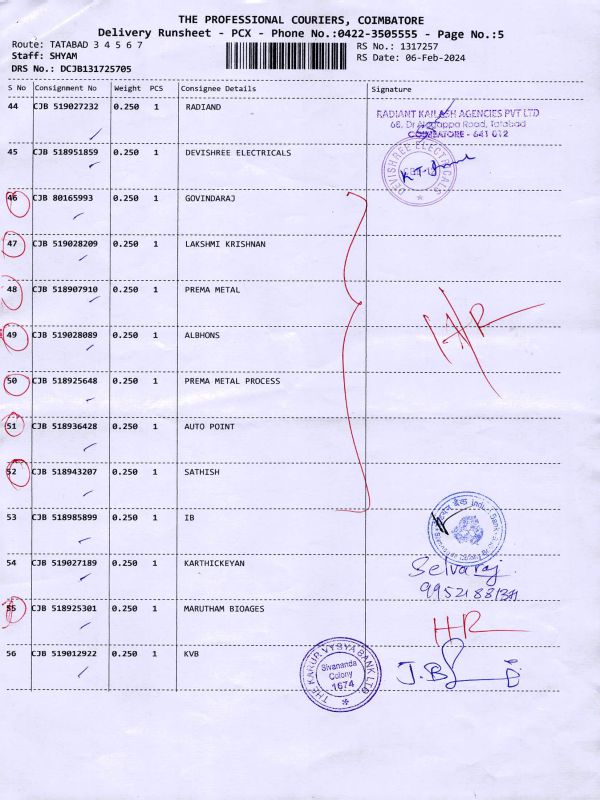 THE PROFESSIONAL COURIERS, COIMBATORE
Delivery Runsheet - PCX - Phone No.:0422-3505555 - Page No.:5
Route: TATABAD 3 4 5 6 7 RS No.: 1317257
Staff: SHYAM RS Date: 06-Feb-2024
DRS No.: DCJB131725705
S No Consignment No Weight PCS Consignee Details Signature
44 CJB 519027232 0.250 1 RADIAND
RADIANT KAILASH AGENCIES PVT LTD
68, Dr Alagappa Road, Tatabad
COIMBATORE - 641 012
45 CJB 518951859 0.250 1 DEVISHREE ELECTRICALS
DEVISHREE ELECTRICALS
46 CJB 80165993 0.250 1 GOVINDARAJ
47 CJB 519028209 0.250 1 LAKSHMI KRISHNAN
48 CJB 518907910 0.250 1 PREMA METAL
49 CJB 519028089 0.250 1 ALBHONS
HR
50 CJB 518925648 0.250 1 PREMA METAL PROCESS
51 CJB 518936428 0.250 1 AUTO POINT
52 CJB 518943207 0.250 1 SATHISH
53 CJB 518985899 0.250 1 IB
Indian Bank
54 CJB 519027189 0.250 1 KARTHICKEYAN
Selvaraj
55 CJB 518925301 0.250 1 MARUTHAM BIOAGES
HR
56 CJB 519012922 0.250 1 KVB
THE KARUR VYSYA BANK LTD
Sivananda
Colony
1674
J.B